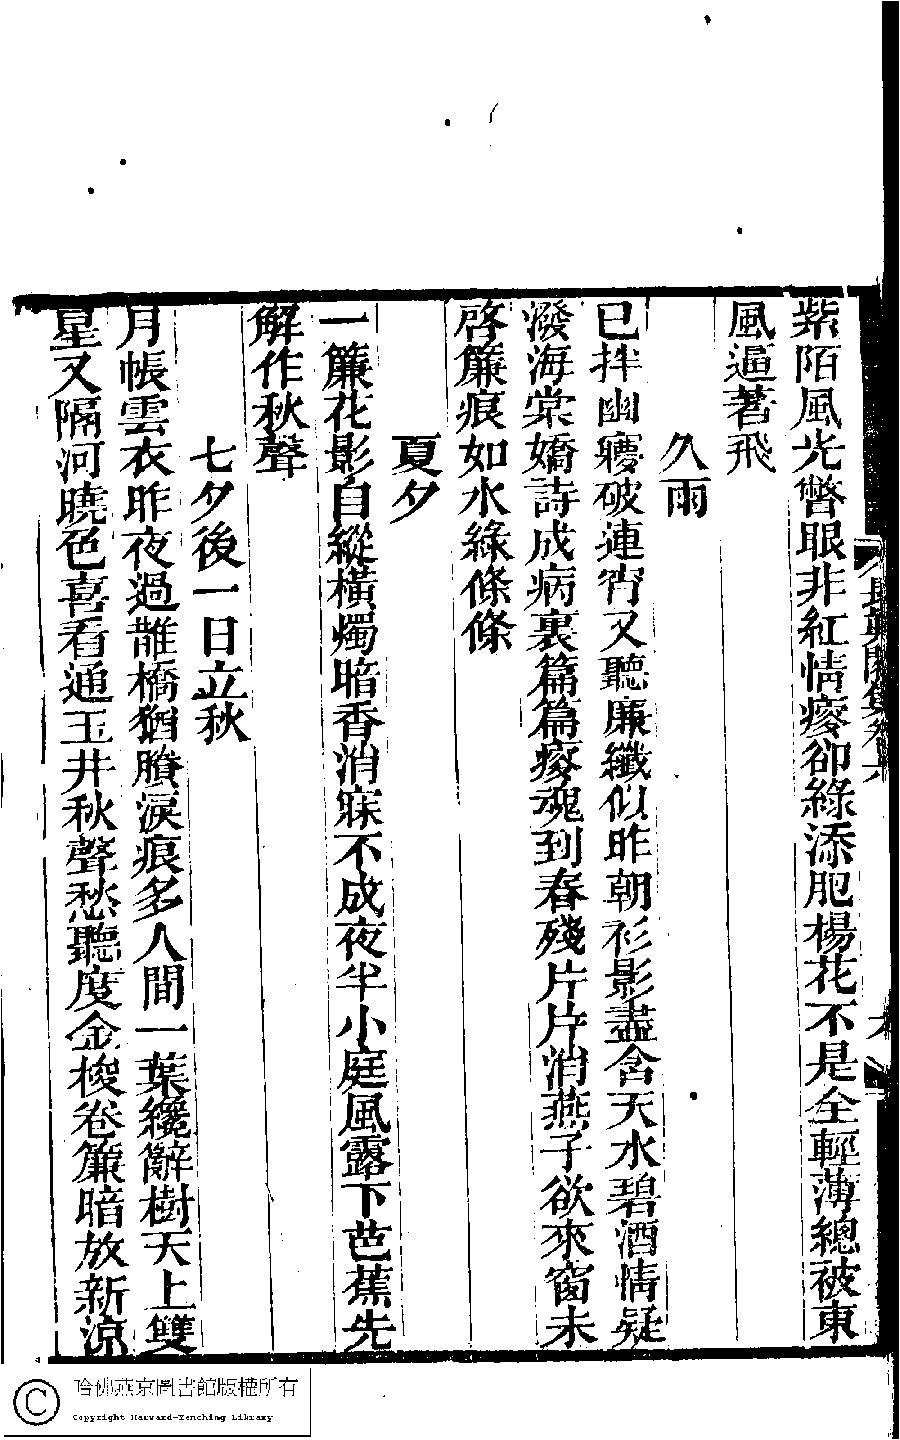 紫陌風光瞥眼非紅情瘦卻綠添肥楊花不是全輕薄總被東
風逼著飛
久雨
已拌幽夢破連宵又聽廉纖似昨朝衫影盡含天水碧酒情疑
潑海棠嬌詩成病裏篇篇瘦魂到春殘片片消燕子欲來窗未
啓簾痕如水綠條條
夏夕
一簾花影自縱橫燭暗香消寐不成夜半小庭風露下芭蕉先
解作秋聲
七夕後一日立秋
月帳雲衣昨夜過誰橋猶賸淚痕多人間一葉纔辭樹天上雙
星又隔河曉色喜看通玉井秋聲愁聽度金梭卷簾暗放新涼
長真閣集卷六
哈佛燕京圖書館版權所有
Copyright Harvard-Yenching Library